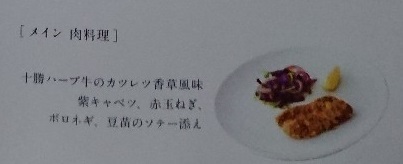 [メイン 肉料理]
十勝ハーブ牛のカツレツ香草風味
紫キャベツ、赤玉ねぎ、
ポロネギ、豆苗のソテー添え